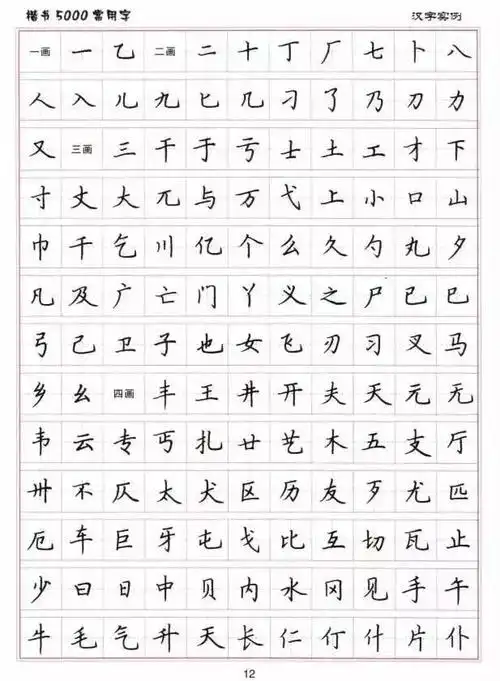 楷书5000常用字 汉字实例
一画 一 乙 二画 二 十 丁 厂 七 卜 八
人 入 儿 九 匕 几 刁 了 乃 刀 力
又 三画 三 干 于 亏 士 土 工 才 下
寸 丈 大 兀 与 万 弋 上 小 口 山
巾 千 乞 川 亿 个 么 久 勺 丸 夕
凡 及 广 亡 门 丫 义 之 尸 已 巳
弓 己 卫 子 也 女 飞 刃 习 叉 马
乡 幺 四画 丰 王 井 开 夫 天 元 无
韦 云 专 丐 扎 廿 艺 木 五 支 厅
卅 不 仄 太 犬 区 历 友 歹 尤 匹
厄 车 巨 牙 屯 戈 比 互 切 瓦 止
少 曰 日 中 贝 内 水 冈 见 手 午
牛 毛 气 升 夭 长 仁 仃 什 片 仆
12